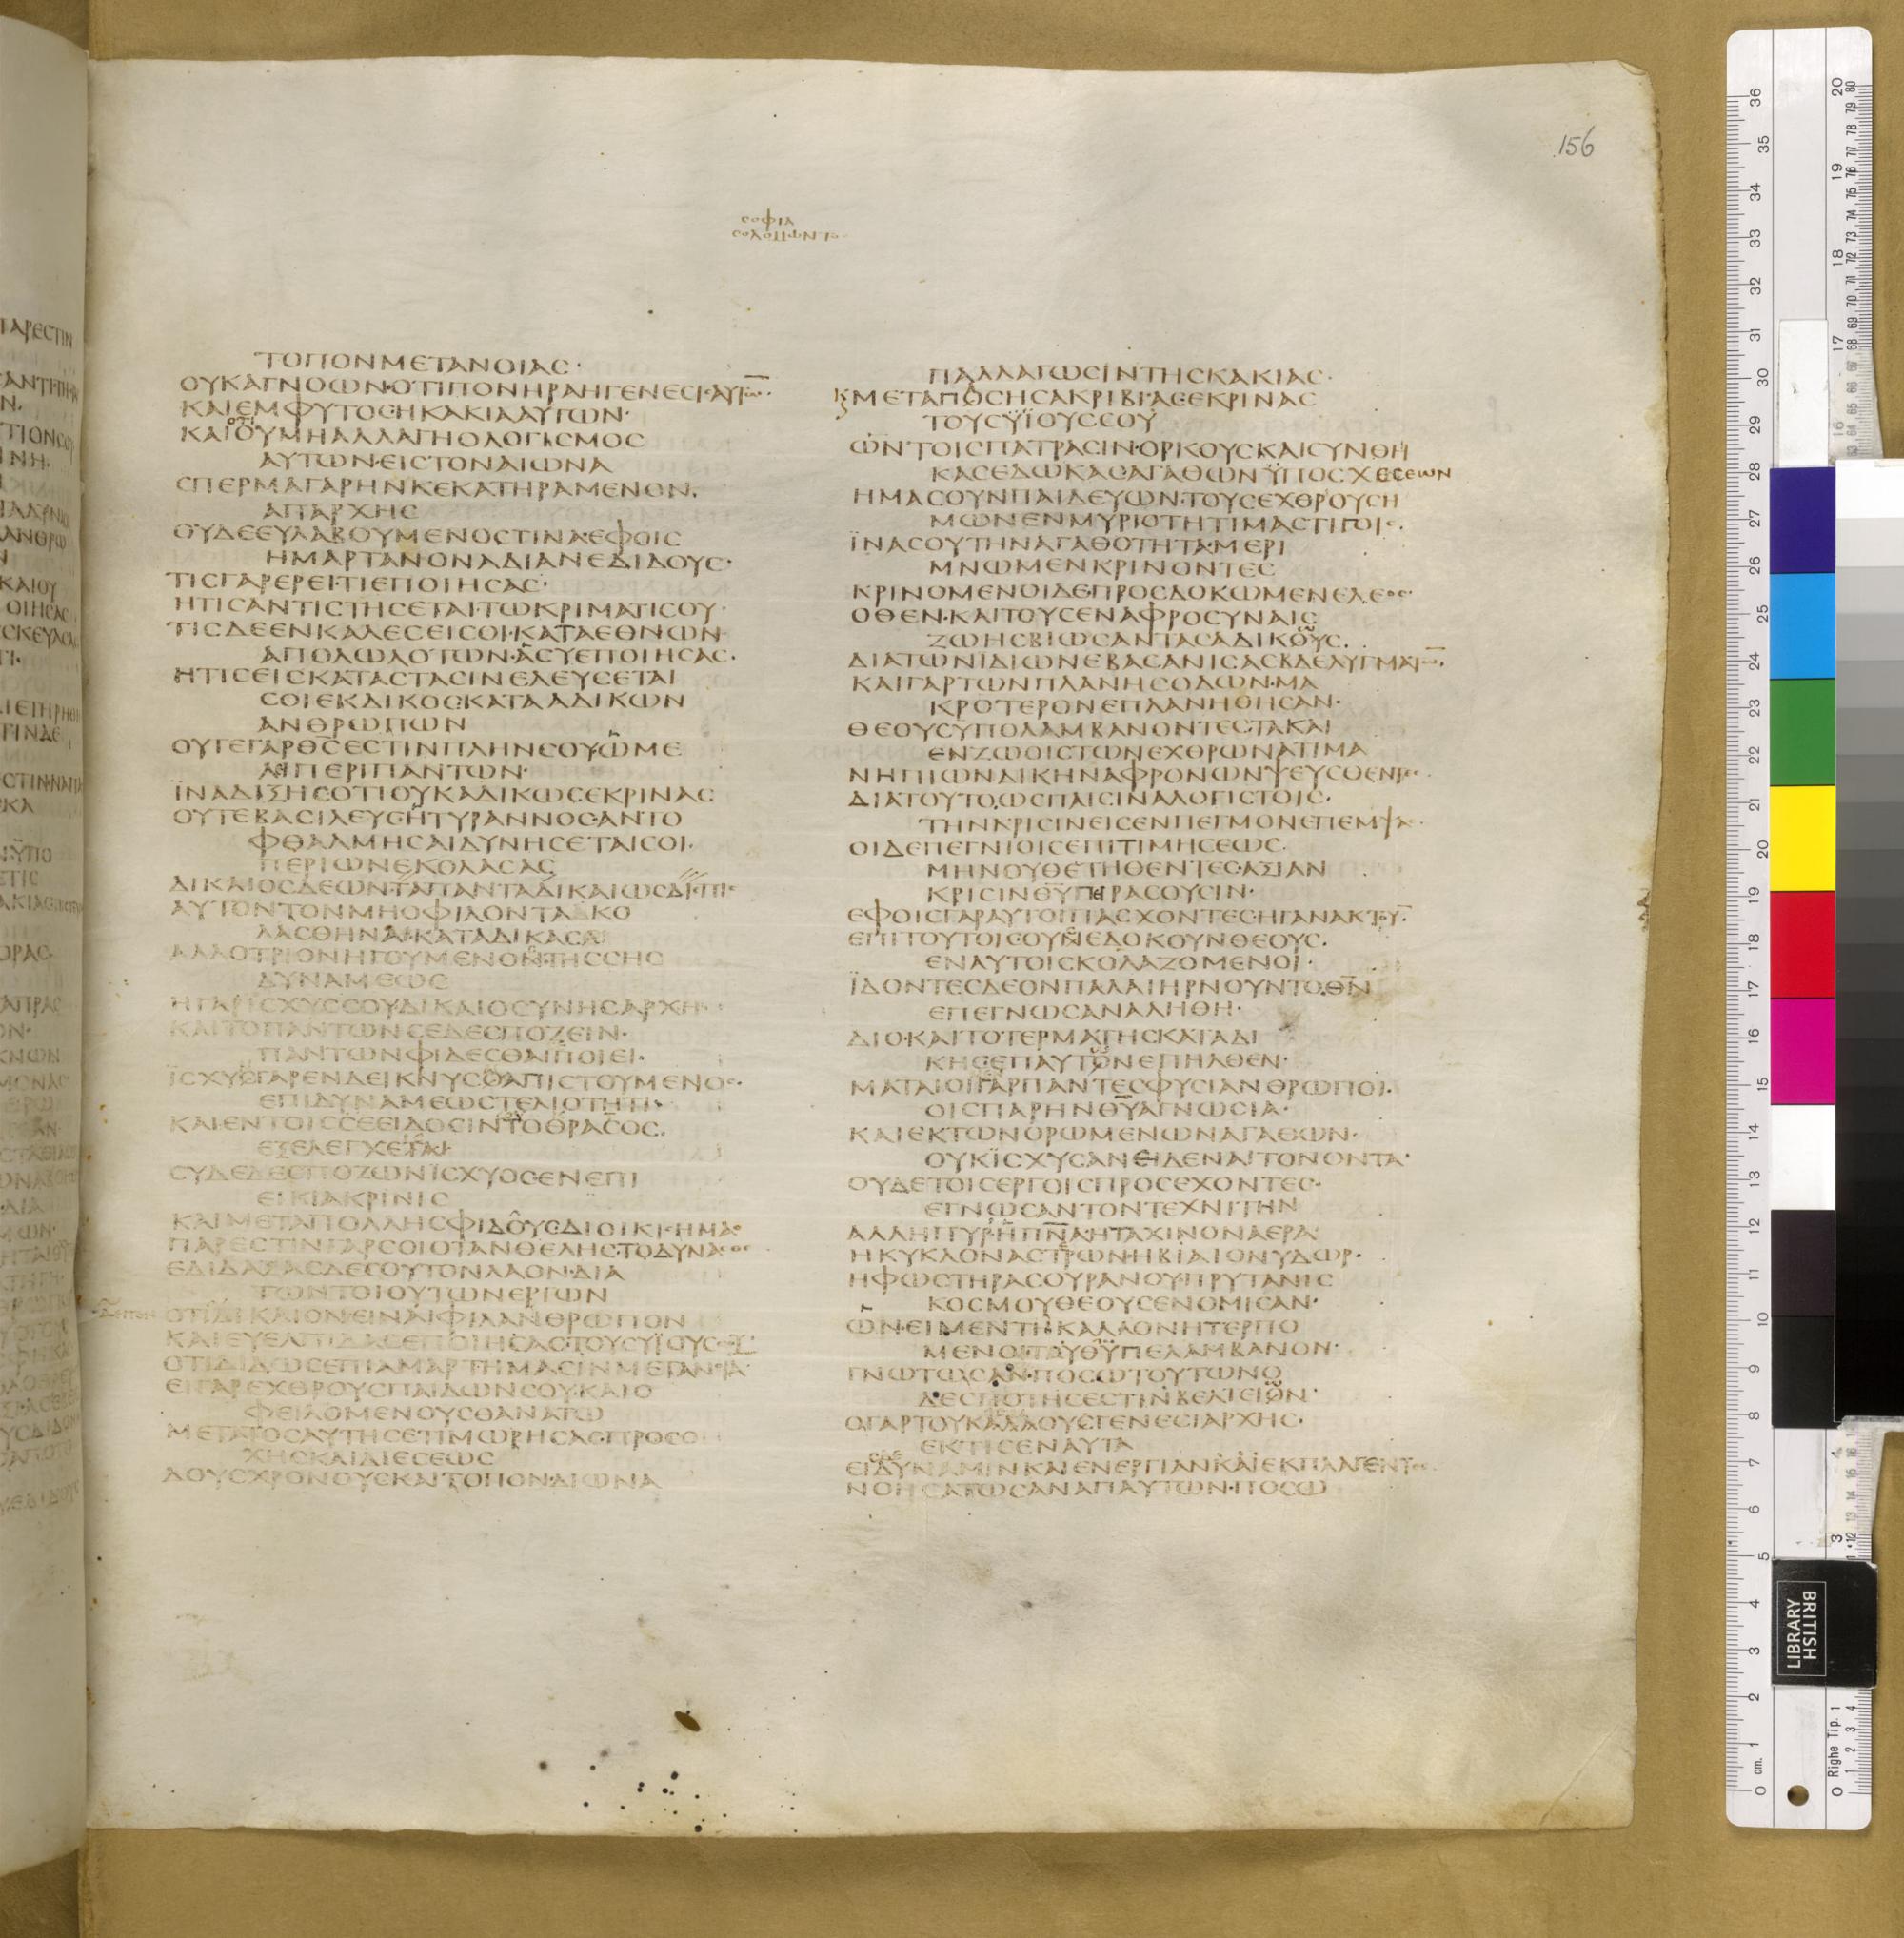 156
ϹΟΦΙΑ
ϹΟΛΟΜΩΝΤΟϹ
ΤΟΠΟΝΜΕΤΑΝΟΙΑϹ·
ΟΥΚΑΓΝΟΩΝ·ΟΤΙΠΟΝΗΡΑΗΓΕΝΕϹΙ·ΑΥΤΩ̅·
ΚΑΙΕΜΦΥΤΟϹΗΚΑΚΙΑΑΥΤΩΝ·
ΚΑΙΟΥΜΗΑΛΛΑΓΗΟΛΟΓΙϹΜΟϹ
ΑΥΤΩΝ·ΕΙϹΤΟΝΑΙΩΝΑ
ϹΠΕΡΜΑΓΑΡΗΝΚΕΚΑΤΗΡΑΜΕΝΟΝ·
ΑΠΑΡΧΗϹ
ΟΥΔΕΕΥΛΑΒΟΥΜΕΝΟϹΤΙΝΑ·ΕΦΟΙϹ
ΗΜΑΡΤΑΝΟΝΑΔΙΑΝΕΔΙΔΟΥϹ·
ΤΙϹΓΑΡΕΡΕΙ·ΤΙΕΠΟΙΗϹΑϹ·
ΗΤΙϹΑΝΤΙϹΤΗϹΕΤΑΙ·ΤΩΚΡΙΜΑΤΙϹΟΥ·
ΤΙϹΔΕΕΝΚΑΛΕϹΕΙϹΟΙ·ΚΑΤΑΕΘΝΩΝ
ΑΠΟΛΩΛΟΤΩΝ·ΑϹΥΕΠΟΙΗϹΑϹ·
ΗΤΙϹΕΙϹΚΑΤΑϹΤΑϹΙΝΕΛΕΥϹΕΤΑΙ
ϹΟΙΕΚΔΙΚΟϹΚΑΤΑΑΔΙΚΩΝ
ΑΝΘΡΩΠΩΝ
ΟΥΓΕΓΑΡΘϹ̅ΕϹΤΙΝΠΛΗΝϹΟΥ·ΩΜΕ
ΛΙΠΕΡΙΠΑΝΤΩΝ·
ΪΝΑΔΙΞΗϹΟΤΙΟΥΚΑΔΙΚΩϹΕΚΡΙΝΑϹ
ΟΥΤΕΒΑϹΙΛΕΥϹΗΤΥΡΑΝΝΟϹ·ΑΝΤΟ
ΦΘΑΛΜΗϹΑΙΔΥΝΗϹΕΤΑΙϹΟΙ·
ΠΕΡΙΩΝΕΚΟΛΑϹΑϹ
ΔΙΚΑΙΟϹΔΕΩΝ·ΤΑΠΑΝΤΑΔΙΚΑΙΩϹΔΙΕΠΙϹ
ΑΥΤΟΝΤΟΝΜΗΟΦΙΛΟΝΤΑΚΟ
ΛΑϹΘΗΝΑΙ·ΚΑΤΑΔΙΚΑϹΑΙ
ΑΛΛΟΤΡΙΟΝΗΓΟΥΜΕΝΟΝΤΗϹϹΗϹ
ΔΥΝΑΜΕΩϹ
ΗΓΑΡΙϹΧΥϹϹΟΥΔΙΚΑΙΟϹΥΝΗϹΑΡΧΗ·
ΚΑΙΤΟΠΑΝΤΩΝϹΕΔΕϹΠΟΖΕΙΝ·
ΠΑΝΤΩΝΦΙΔΕϹΘΑΙΠΟΙΕΙ·
ΪϹΧΥ̅ΓΑΡΕΝΔΕΙΚΝΥϹΟΑΠΙϹΤΟΥΜΕΝΟϹ·
ΕΠΙΔΥΝΑΜΕΩϹΤΕΛΙΟΤΗΤΙ·
ΚΑΙΕΝΤΟΙϹϹΕΕΙΔΟϹΙΝΤΟΘΡΑϹΟϹ·
ΕΞΕΛΕΓΧΕΤΑΙ
ϹΥΔΕΔΕϹΠΟΖΩΝΪϹΧΥΟϹΕΝΕΠΙ
ΕΙΚΙΑΚΡΙΝΙϹ
ΚΑΙΜΕΤΑΠΟΛΛΗϹΦΙΔΟΥϹΔΙΟΙΚΙϹΗΜΑϹ
ΠΑΡΕϹΤΙΝΓΑΡϹΟΙΟΤΑΝΘΕΛΗϹΤΟΔΥΝΑϹΘΕ
ΕΔΙΔΑΞΑϹΔΕϹΟΥΤΟΝΛΑΟΝ·ΔΙΑ
ΤΩΝΤΟΙΟΥΤΩΝΕΡΓΩΝ
ΟΤΙΔΙΚΑΙΟΝΕΙΝΑΙΦΙΛΑΝΘΡΩΠΟΝ
ΚΑΙΕΥΕΛΠΙΔΑϹΕΠΟΙΗϹΑϹΤΟΥϹΥΪΟΥϹϹΟΥ·
ΟΤΙΔΙΔΩϹΕΠΙΑΜΑΡΤΗΜΑϹΙΝΜΕΤΑΝΟΙΑ·
ΕΙΓΑΡΕΧΘΡΟΥϹΠΑΙΔΩΝϹΟΥΚΑΙΟ
ΦΕΙΛΟΜΕΝΟΥϹΘΑΝΑΤΩ
ΜΕΤΑΤΟϹΑΥΤΗϹΕΤΙΜΩΡΗϹΑϹ·ΠΡΟϹΟ
ΧΗϹΚΑΙΔΙΕϹΕΩϹ
ΔΟΥϹΧΡΟΝΟΥϹΚΑΙΤΟΠΟΝ·ΔΙΩΝΑ
ΠΑΛΛΑΓΩϹΙΝΤΗϹΚΑΚΙΑϹ·
ΜΕΤΑΠΟϹΗϹΑΚΡΙΒΙΑϹΕΚΡΙΝΑϹ
ΤΟΥϹΥΪΟΥϹϹΟΥ
ΩΝΤΟΙϹΠΑΤΡΑϹΙΝ·ΟΡΚΟΥϹΚΑΙϹΥΝΘΗ
ΚΑϹΕΔΩΚΑϹΑΓΑΘΩΝΫΠΟϹΧΕϹΕΩΝ
ΗΜΑϹΟΥΝΠΑΙΔΕΥΩΝ·ΤΟΥϹΕΧΘΡΟΥϹΗ
ΜΩΝΕΝΜΥΡΙΟΤΗΤΙΜΑϹΤΙΓΟΙϹ·
ΪΝΑϹΟΥΤΗΝΑΓΑΘΟΤΗΤΑ·ΜΕΡΙ
ΜΝΩΜΕΝΚΡΙΝΟΝΤΕϹ
ΚΡΙΝΟΜΕΝΟΙΔΕ·ΠΡΟϹΔΟΚΩΜΕΝΕΛΕΟϹ·
ΟΘΕΝ·ΚΑΙΤΟΥϹΕΝΑΦΡΟϹΥΝΑΙϹ
ΖΩΗϹΒΙΩϹΑΝΤΑϹΑΔΙΚΟΥϹ·
ΔΙΑΤΩΝΙΔΙΩΝΕΒΑϹΑΝΙϹΑϹΒΔΕΛΥΓΜΑΤΩ̅·
ΚΑΙΓΑΡΤΩΝΠΛΑΝΗϹΟΔΩΝ·ΜΑ
ΚΡΟΤΕΡΟΝΕΠΛΑΝΗΘΗϹΑΝ·
ΘΕΟΥϹΥΠΟΛΑΜΒΑΝΟΝΤΕϹΤΑΚΑΙ
ΕΝΖΩΟΙϹΤΩΝΕΧΘΡΩΝΑΤΙΜΑ
ΝΗΠΙΩΝΔΙΚΗΝΑΦΡΟΝΩΝΨΕΥϹΘΕΝΤΕϹ·
ΔΙΑΤΟΥΤΟ,ΩϹΠΑΙϹΙΝΑΛΟΓΙϹΤΟΙϹ·
ΤΗΝΚΡΙϹΙΝΕΙϹΕΝΠΕΓΜΟΝΕΠΕΜΨΑϹ
ΟΙΔΕΠΕΓΝΙΟΙϹΕΠΙΤΙΜΗϹΕΩϹ·
ΜΗΝΟΥΘΕΤΗΘΕΝΤΕϹ·ΑΞΙΑΝ
ΚΡΙϹΙΝΘΥ̅ΠΕΙΡΑϹΟΥϹΙΝ·
ΕΦΟΙϹΓΑΡΑΥΤΟΙΠΑϹΧΟΝΤΕϹ·ΗΓΑΝΑΚΤΟΥ̅·
ΕΠΙΤΟΥΤΟΙϹΟΥΝΕΔΟΚΟΥΝΘΕΟΥϹ·
ΕΝΑΥΤΟΙϹΚΟΛΑΖΟΜΕΝΟΙ·
ΪΔΟΝΤΕϹΔΕΟΝΠΑΛΑΙΗΡΝΟΥΝΤΟ·ΘΝ̅
ΕΠΕΓΝΩϹΑΝΑΛΗΘΗ·
ΔΙΟ·ΚΑΙΤΟΤΕΡΜΑΤΗϹΚΑΤΑΔΙ
ΚΗϹΕΠΑΥΤΟΝΕΠΗΛΘΕΝ·
ΜΑΤΑΙΟΙΓΑΡΠΑΝΤΕϹΦΥϹΙΑΝΘΡΩΠΟΙ·
ΟΙϹΠΑΡΗΝΘΥ̅ΑΓΝΩϹΙΑ·
ΚΑΙΕΚΤΩΝΟΡΩΜΕΝΩΝΑΓΑΘΩΝ·
ΟΥΚΪϹΧΥϹΑΝΕΙΔΕΝΑΙΤΟΝΟΝΤΑ·
ΟΥΔΕΤΟΙϹΕΡΓΟΙϹΠΡΟϹΕΧΟΝΤΕϹ·
ΕΓΝΩϹΑΝΤΟΝΤΕΧΝΙΤΗΝ
ΑΛΛΗΠΥΡΗΠΝ̅Α·ΗΤΑΧΙΝΟΝΑΕΡΑ
ΗΚΥΚΛΟΝΑϹΤΡΩΝ·ΗΒΙΑΙΟΝΥΔΩΡ·
ΗΦΩϹΤΗΡΑϹΟΥΡΑΝΟΥ·ΠΡΥΤΑΝΙϹ
ΚΟϹΜΟΥΘΕΟΥϹΕΝΟΜΙϹΑΝ·
ΩΝ·ΕΙΜΕΝΤΗΚΑΛΛΟΝΗΤΕΡΠΟ
ΜΕΝΟΙΤΑΥΘΫΠΕΛΑΜΒΑΝΟΝ·
ΓΝΩΤΩϹΑΝ·ΠΟϹΩΤΟΥΤΩΝΟ
ΔΕϹΠΟΤΗϹΕϹΤΙΝΒΕΛΤΕΙΟΝ·
ΟΓΑΡΤΟΥΚΑΛΛΟΥϹΓΕΝΕϹΙΑΡΧΗϹ·
ΕΚΤΙϹΕΝΑΥΤΑ
ΕΙΔΥΝΑΜΙΝΚΑΙΕΝΕΡΓΙΑΝΚΑΙΕΚΠΛΑΓΕΝΤΕϹ
ΝΟΗϹΑΤΩϹΑΝΑΠΑΥΤΩΝ·ΠΟϹΩ
BRITISH
LIBRARY